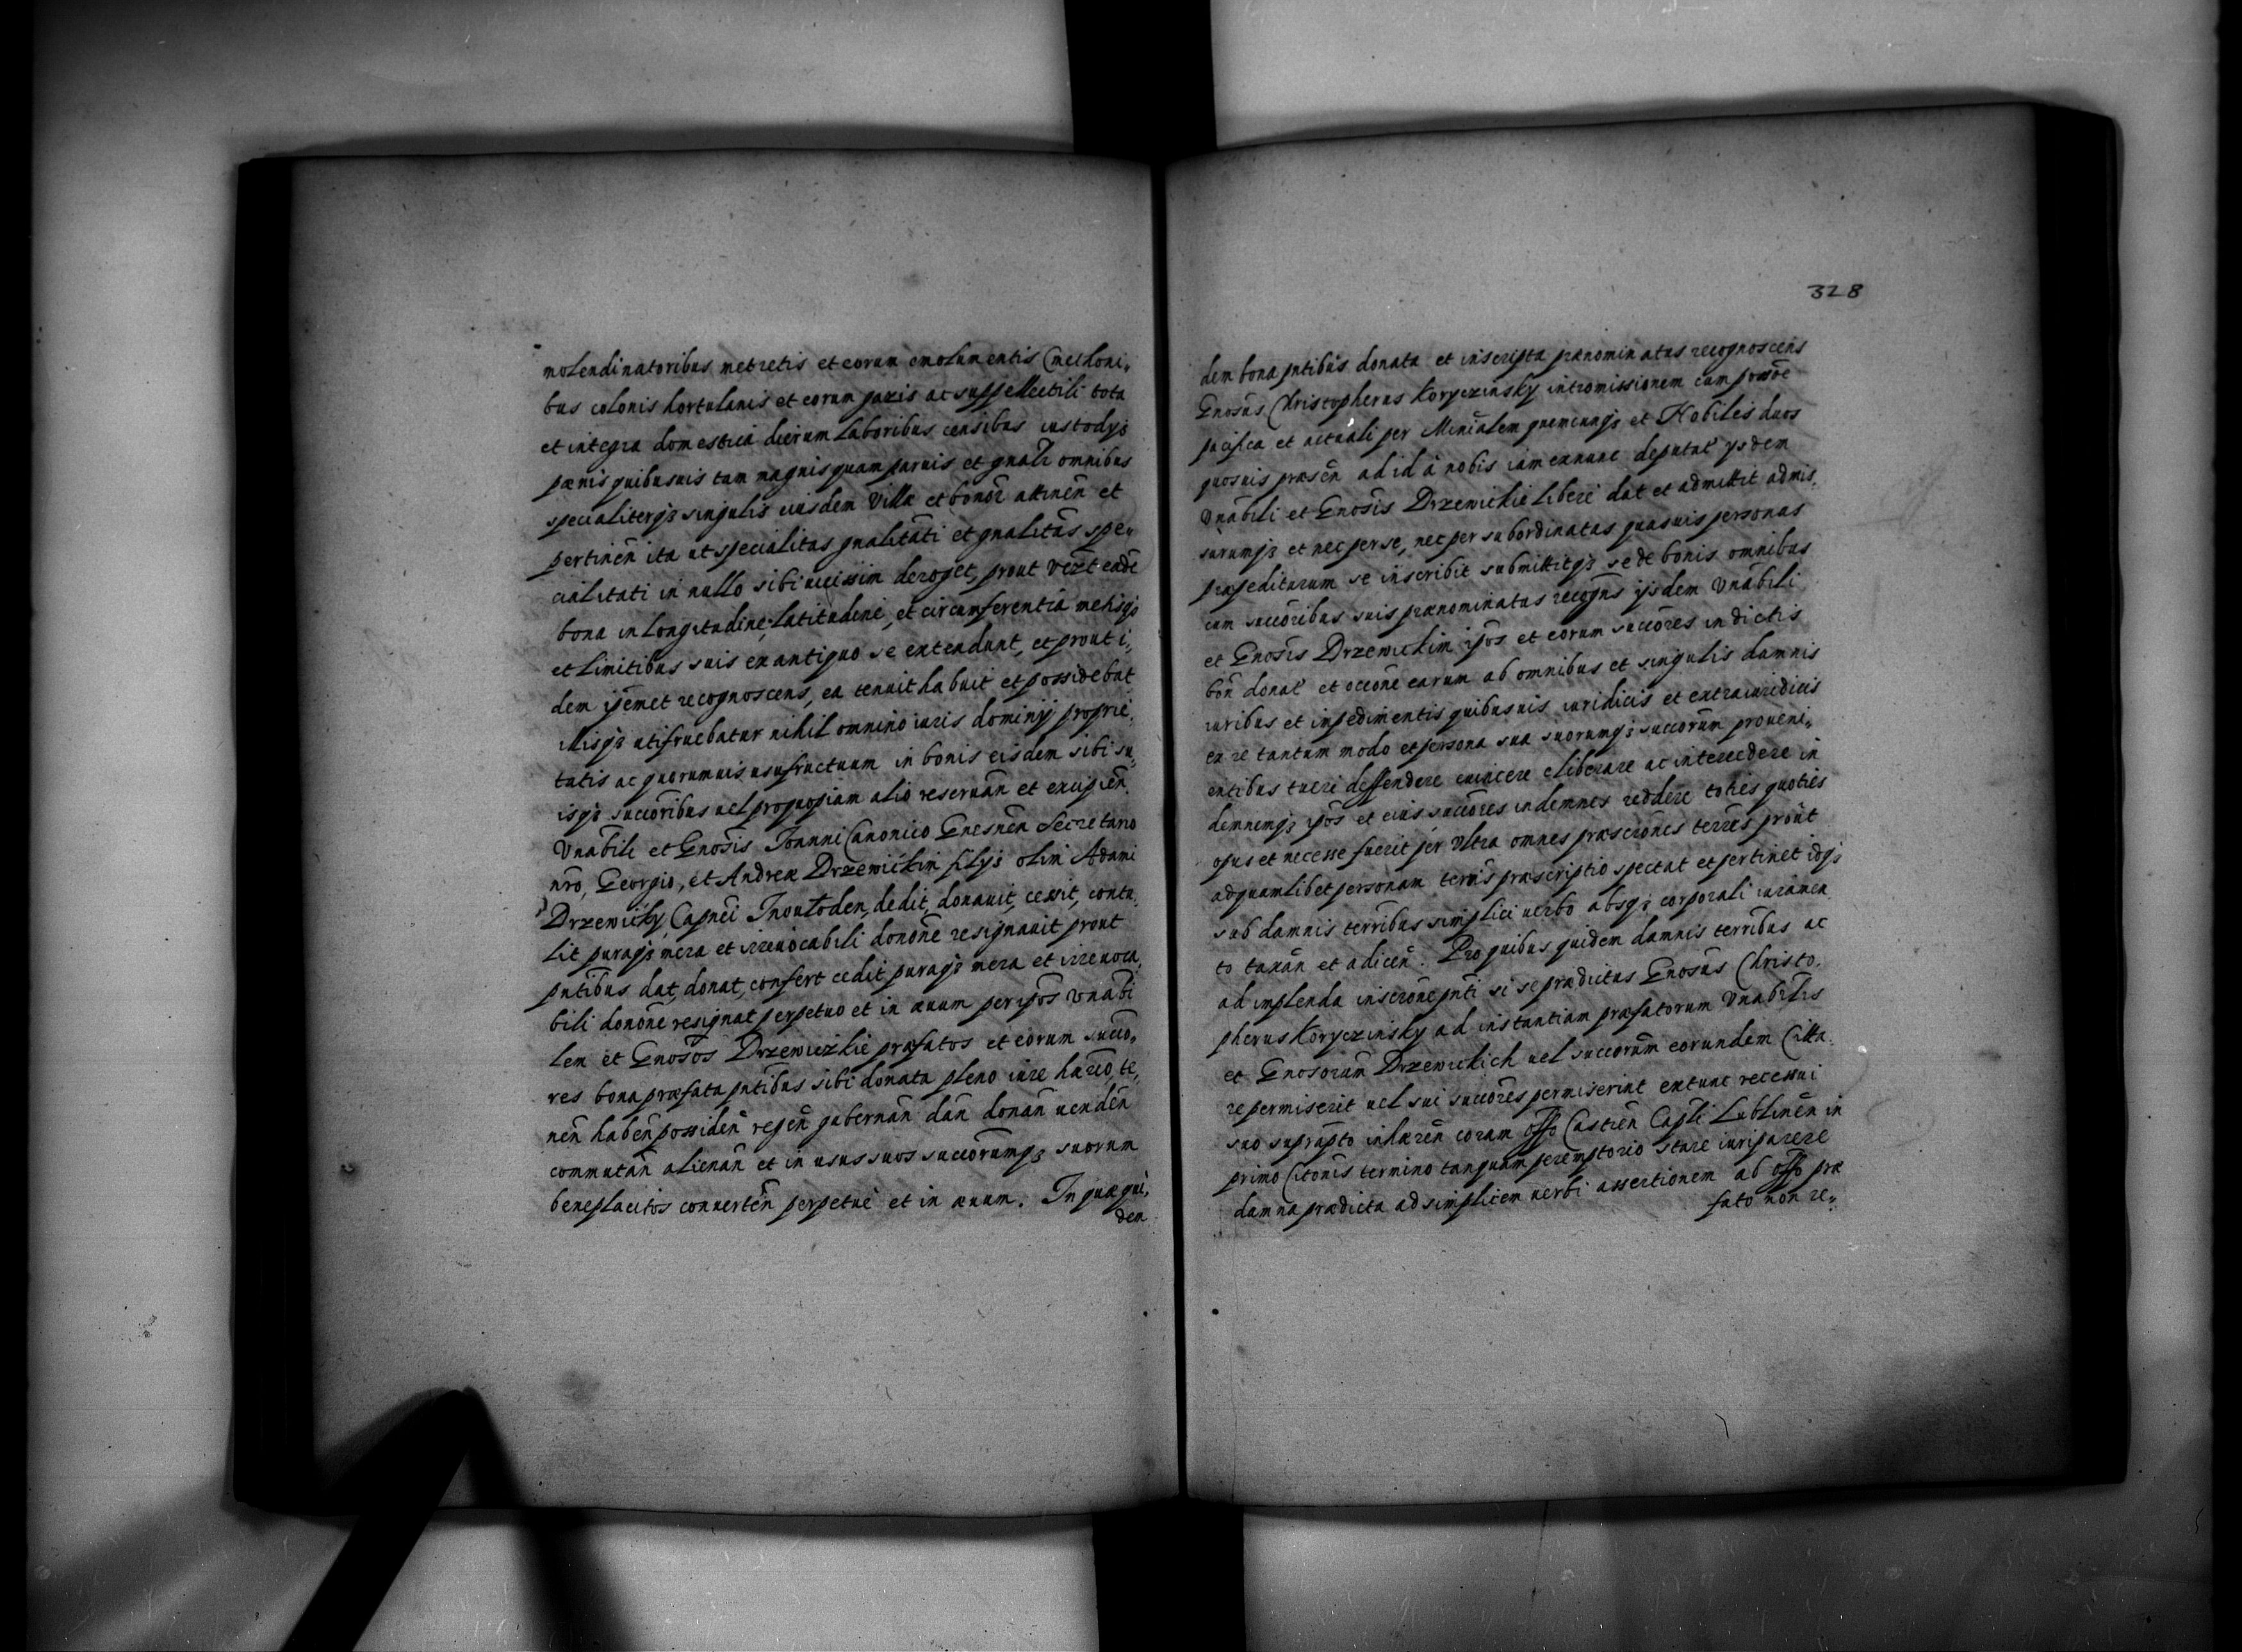 molendinatoribus metretis et eorum emolumentis Cmethoni„
bus colonis hortulanis et eorum paris ac suppellectili tota
et integra domestica dierum laboribus censibus custodijs
pænis quibusuis tam magnis quam paruis et gnãli omnibus
specialiterq3 singulis eiusdem Villæ et bonor̃ attineñ et
pertineñ ita ut specialitas gnalitãti et gnalitãs spe„
cialitati in nullo sibi uicissim deroget, prout eadẽ
bona in longitudine, latitudine, et circumferentia metisq3
et limitibus suis ex antiquo se extendunt, et prout i„
dem ipẽmet recognoscens, ea tenuit habuit et possidebat
illisq3 utifruebatur nihil omnino iuris dominij proprie„
tatis ac quorumuis usufructuum in bonis eisdem sibi su„
isq3 succõribus uel pro quopiam alio reseruãn et excipieñ
Vnãbili et Gnõsis Joanni Canonico Gnesneñ Secretario
nrõ, Georgio, et Andreæ Drzewickim filijs olim Adami
Drzewicky Capnei Inowloden, dedit, donauit, cessit, contu„
lit puraq3 mera et irreuocabili donõne resignauit prout
pntĩbus dat, donat, confert cedit puraq3 mera et irreuoca„
bili donõne resignat perpetuo et in æuum per ipõs Vnãbi
lem et Gnõsos Drzewiczkie præfatos et eorum succo„
res bona præfata pntĩbus sibi donata pleno iure hæreo, te„
neñ habeñ possideñ regeñ gubernañ dañ donañ uendeñ
commutañ alienañ et in usus suos succorũmq3 suorum
beneplacitos conuerteñ perpetuè et in æuum. In quæ qui„
dem
328
dem bona pntibũs donata et inscripta prænominatus recognoscens
Gnosũs Christopherus Koryczinsky intromissionem cum
pacifica et actuali per Miniãlem quemcunq3 et Nobiles duos
quosuis præseñ ad id à nobis iam exnunc deputat' ysdem
Vnãbili et Gnosĩs Drzewickie liberè dat et admittit admis„
surumq3 et nec per se, nec per subordinatas quasuis personas
præpediturum se inscribit submittitq3 se de bonis omnibus
cum succõribus suis prænominatus recogñs ijsdem Vnãbili
et Gnosĩs Drzewickim ipõs et eorum succõres in dictis
boñ donat' et occõne earum ab omnibus et singulis damnis
iuribus et impedimentis quibusuis iuridicis et extraiuridicis
ex re tantum modo et persona sua suorumq3 succorũm proueni„
entibus tueri deffendere euincere eliberare ac intercedere in
demnemq3 ipõs et eius succõres indemnes reddere toties quoties
opus et necesse fuerit per Vltra omnes præscriõnes terrẽs proùt
ad quamlibet personam terrĩs præscriptio spectat et pertinet idq3
sub damnis terrĩbus simplici uerbo absq3 corporali iuramen
to taxañ et adiceñ. Pro quibus quidem damnis terrĩbus ac
ad implenda inscriõne pnti si se prædictus Gnosũs Christo„
pherus Koryczinsky ad instantiam præfatorum Vnabĩlis
et Gnosorũm Drzewickich uel succorũm eorundem Citta„
re permiserit uel sui succõres permiserint extunc recessui
suo suprapto inhæreñ coram offõ Castreñ Capli Lublineñ in
primo Citõnis termino tanquam peremptorio stare iuri parere
damna prædicta ad simplicem uerbi assertionem ab offõ præ
fato non re„